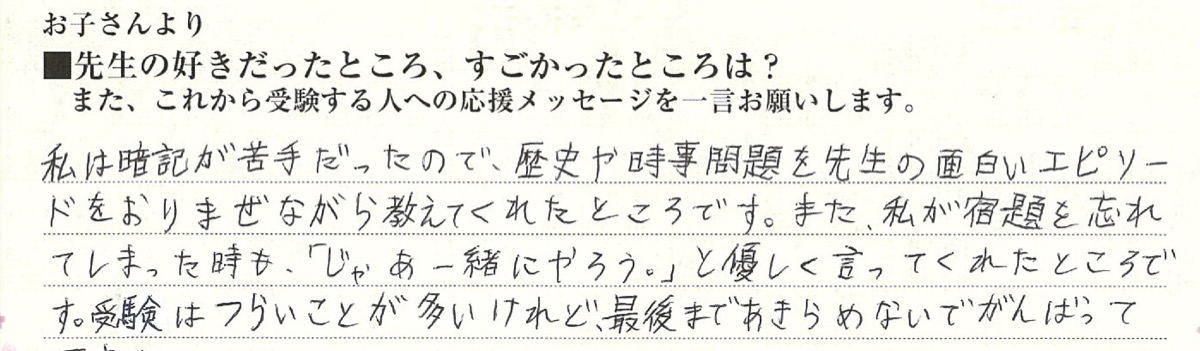 お子さんより
■先生の好きだったところ、すごかったところは？
また、これから受験する人への応援メッセージを一言お願いします。
私は暗記が苦手だったので、歴史や時事問題を先生の面白いエピソー
ドをおりまぜながら教えてくれたところです。また、私が宿題を忘れ
てしまった時も、「じゃあ一緒にやろう。」と優しく言ってくれたところで
す。受験はつらいことが多いけれど、最後まであきらめないでがんばって